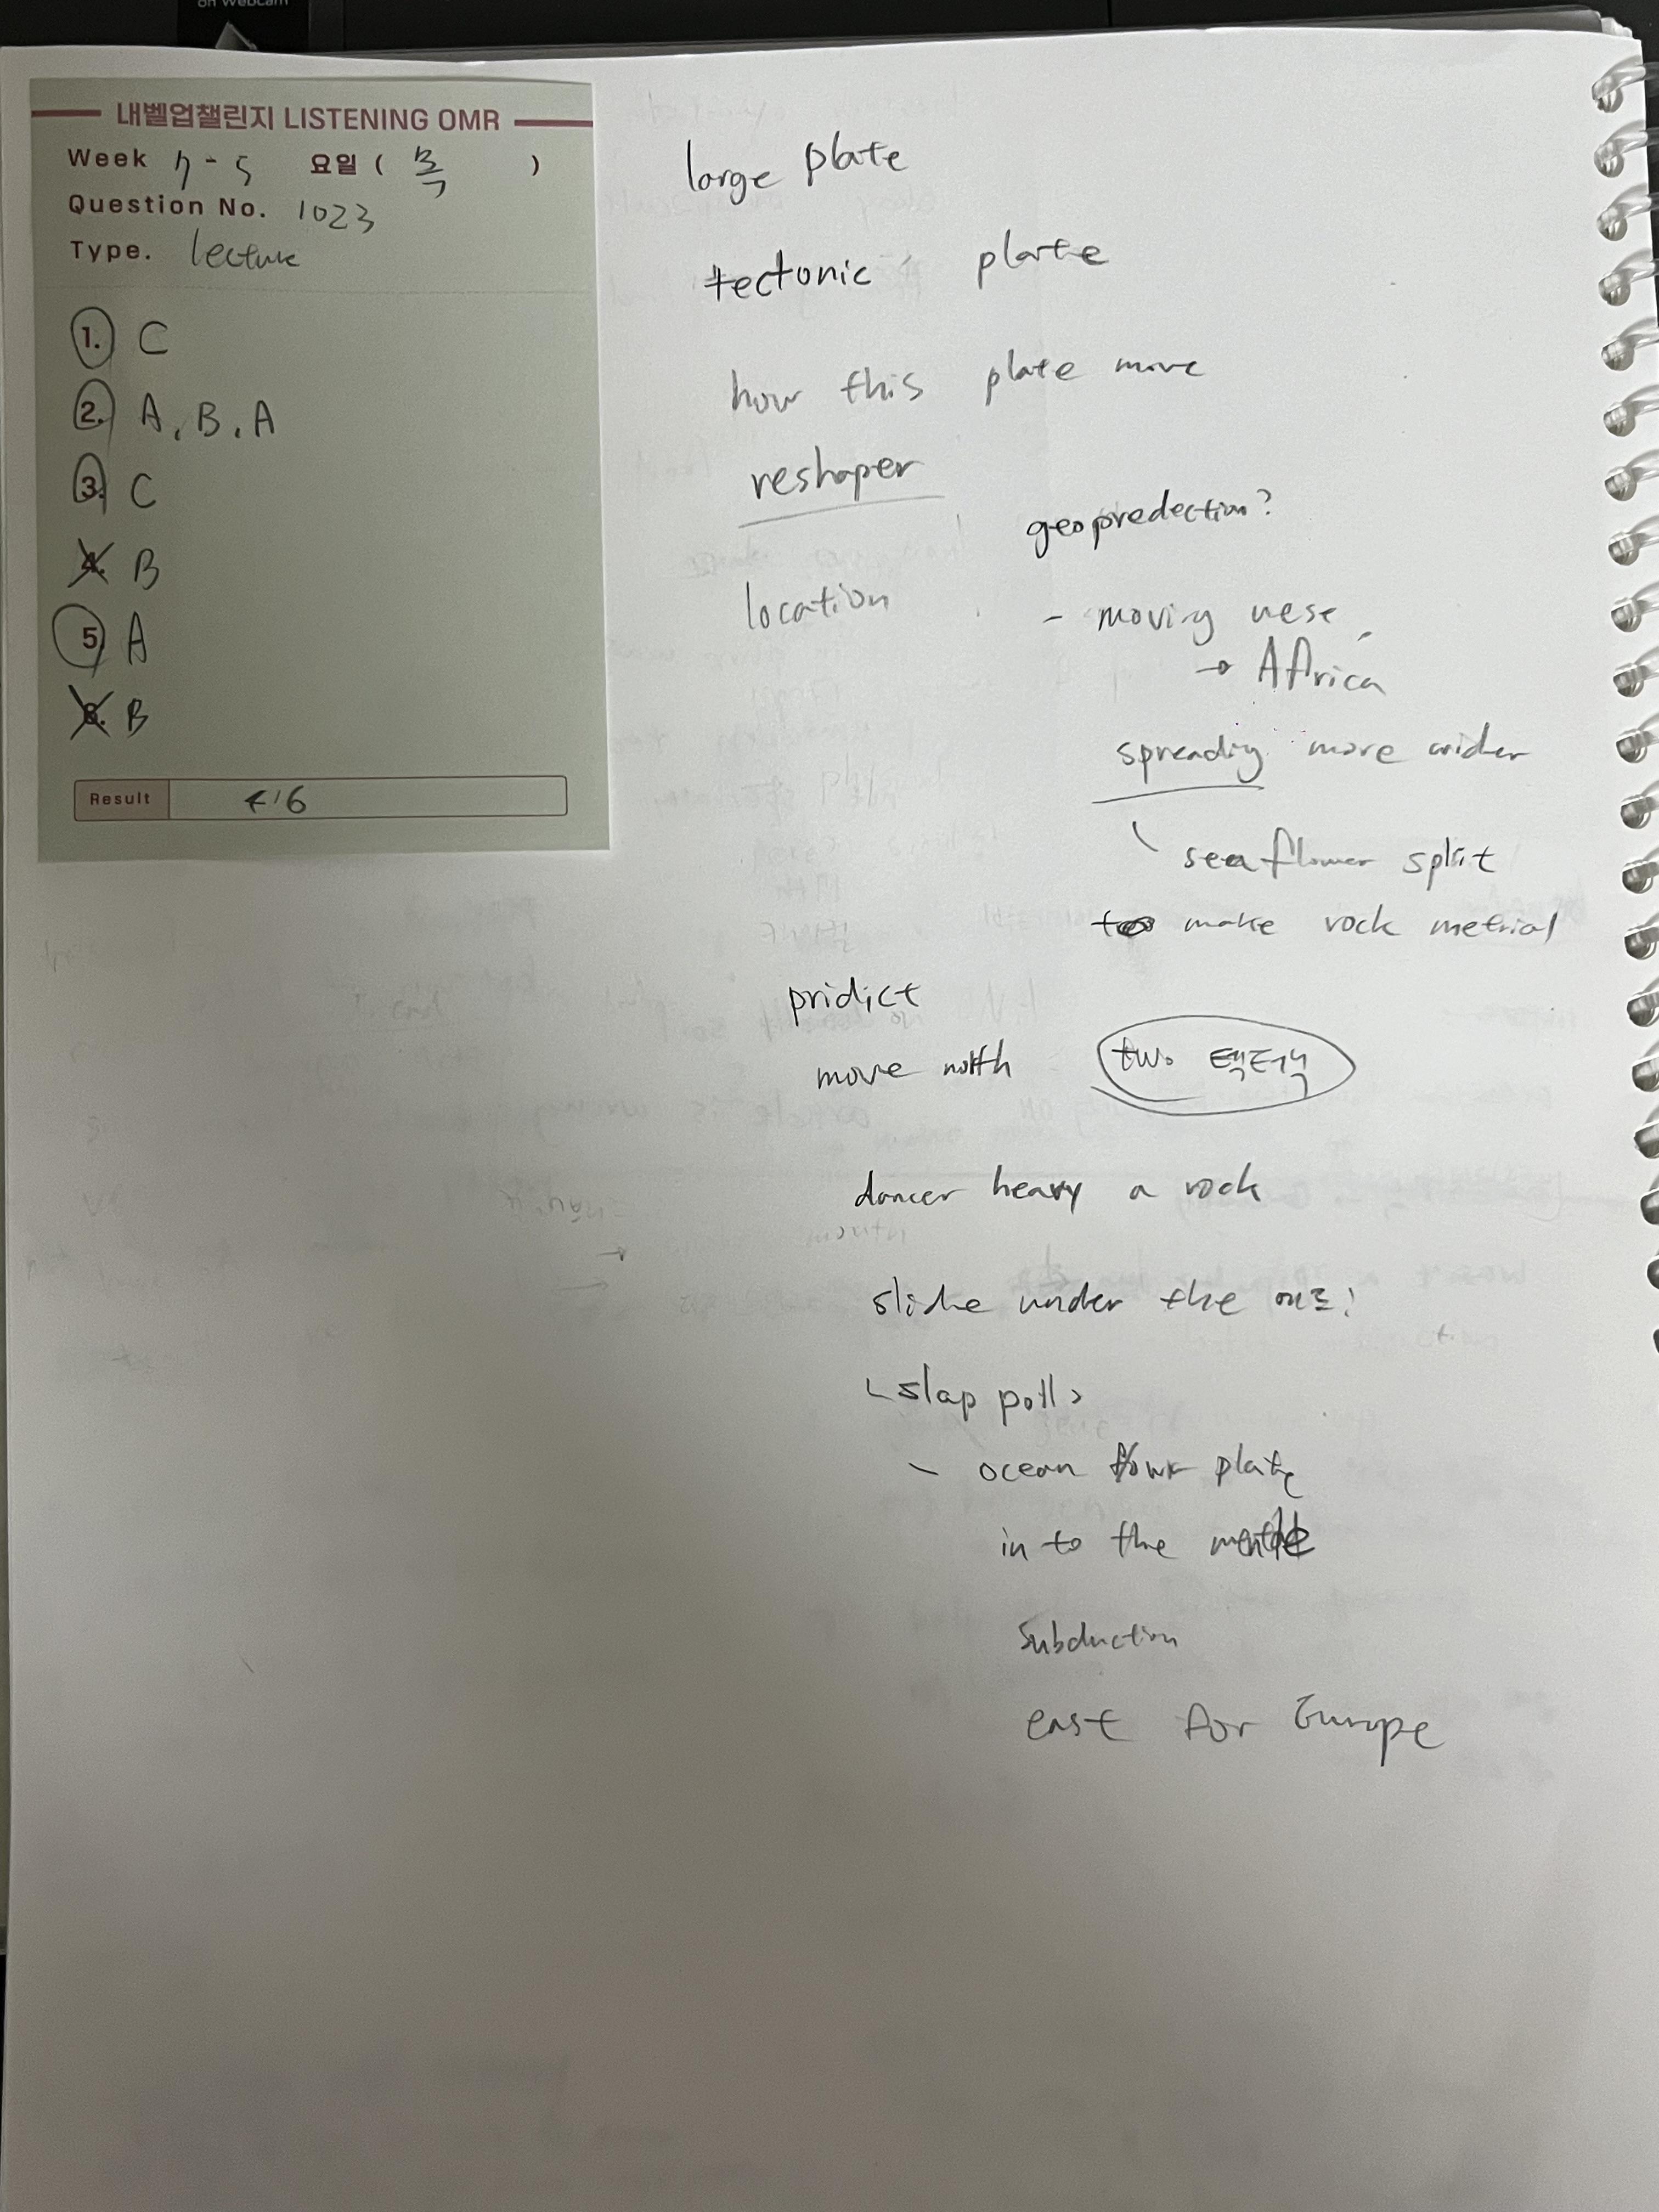 on Webcam
내벨업챌린지 LISTENING OMR
Week 7-5 요일 ( 목 )
Question No. 1023
Type. lecture
1. C
2. A, B, A
3. C
4. B
5. A
6. B
Result 4/6
large plate
tectonic plate
how this plate move
reshaper
geopredection?
location
- moving west
→ Africa
spreading more wider
seaflower split
to make rock metrial
pridict
move north two 텍터닉
dancer heavy a rock
slide under the
<slap poll>
- ocean plate
in to the mentle
subduction
east for Europe